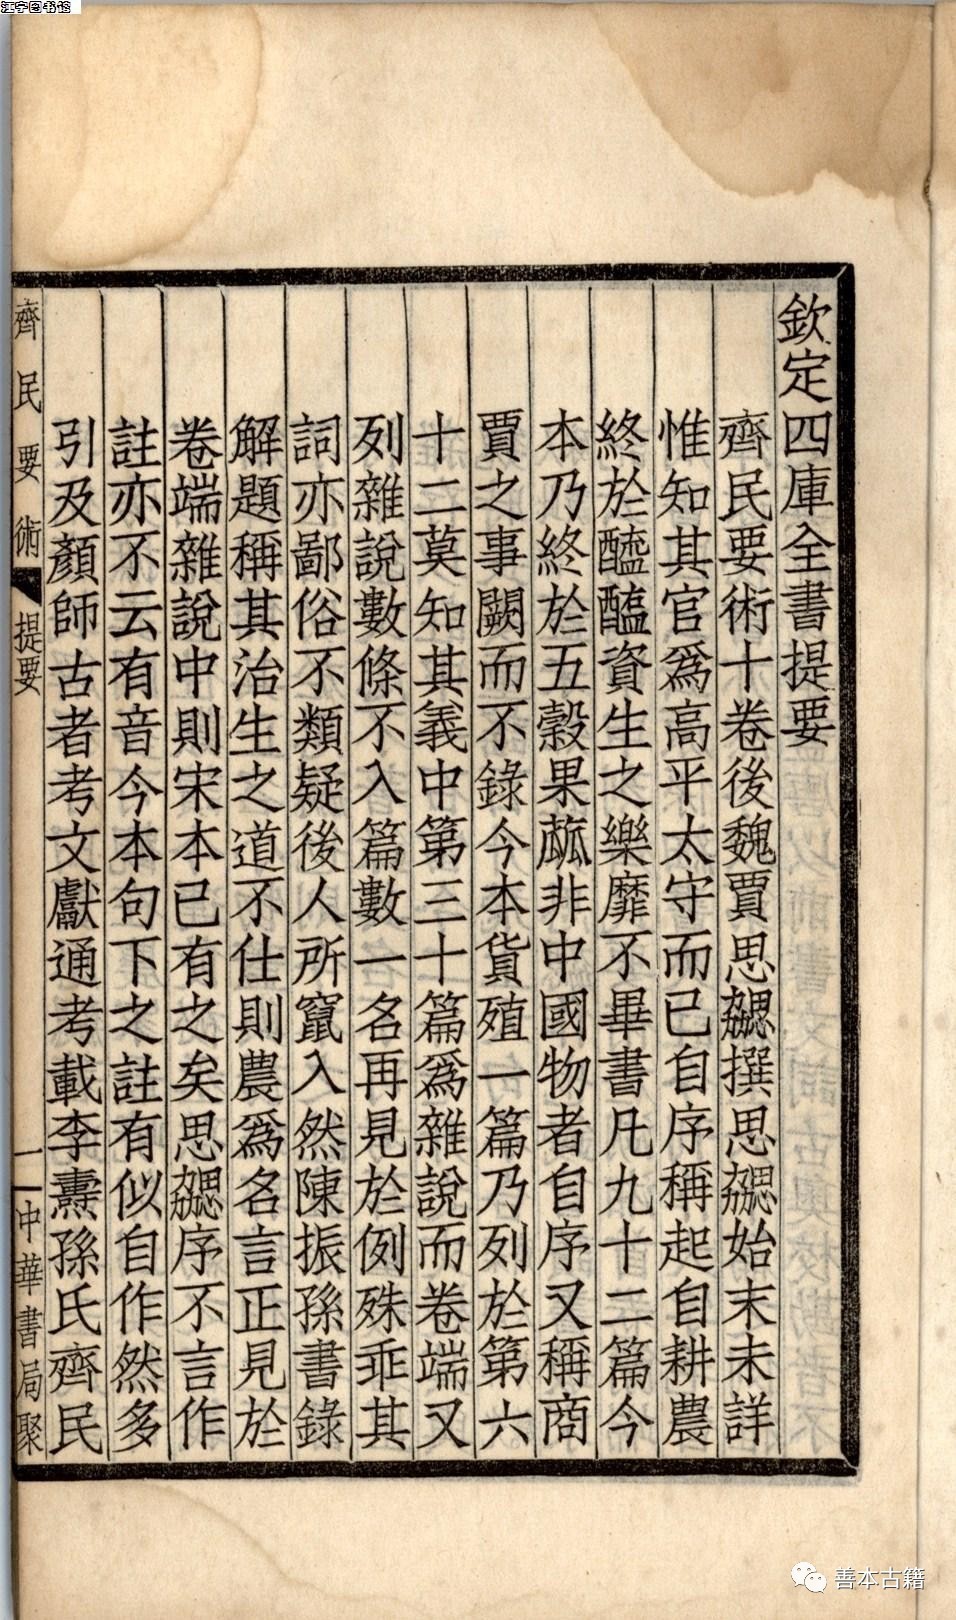 江宁图书馆
欽定四庫全書提要
齊民要術十卷後魏賈思勰撰思勰始末未詳
惟知其官爲高平太守而已自序稱起自耕農
終於醯醢資生之樂靡不畢書凡九十二篇今
本乃終於五穀果蓏非中國物者自序又稱商
賈之事闕而不錄今本貨殖一篇乃列於第六
十二莫知其義中第三十篇爲雜說而卷端又
列雜說數條不入篇數一名再見於例殊乖其
詞亦鄙俗不類疑後人所竄入然陳振孫書錄
解題稱其治生之道不仕則農爲名言正見於
卷端雜說中則宋本已有之矣思勰序不言作
註亦不云有音今本句下之註有似自作然多
引及顏師古者考文獻通考載李燾孫氏齊民
齊民要術 提要 一 中華書局聚
善本古籍